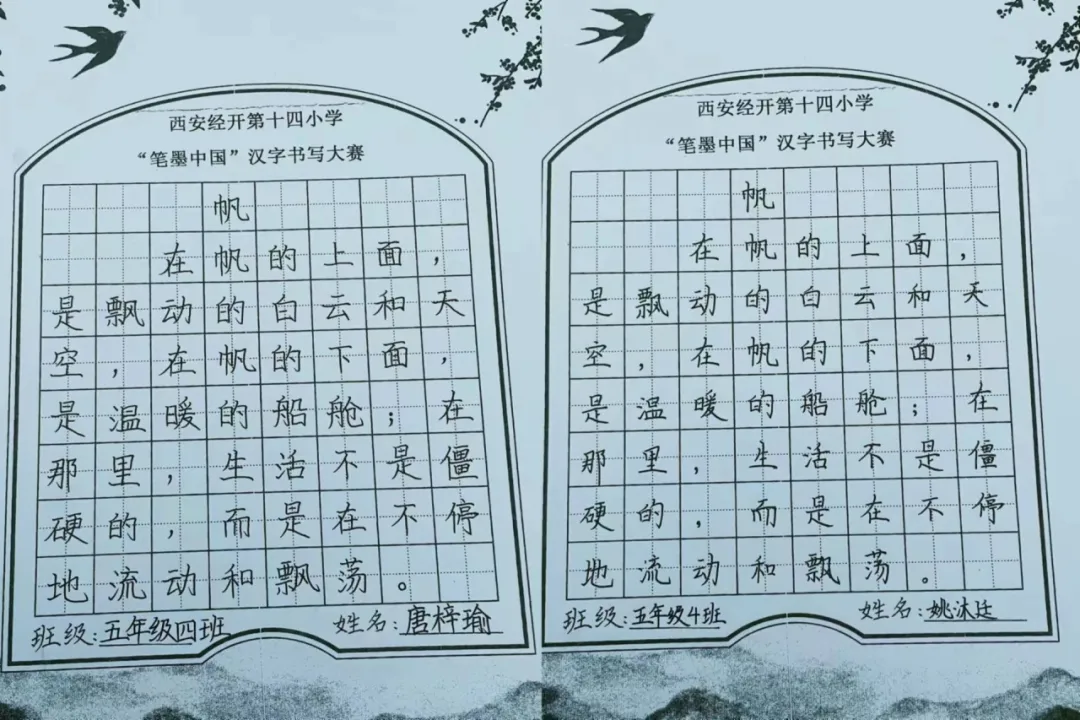 西安经开第十四小学
“笔墨中国”汉字书写大赛
帆
在帆的上面，
是飘动的白云和天
空，在帆的下面，
是温暖的船舱；在
那里，生活不是僵
硬的，而是在不停
地流动和飘荡。
班级:五年级四班 姓名:唐梓瑜
西安经开第十四小学
“笔墨中国”汉字书写大赛
帆
在帆的上面，
是飘动的白云和天
空，在帆的下面，
是温暖的船舱；在
那里，生活不是僵
硬的，而是在不停
地流动和飘荡。
班级:五年级4班 姓名:姚沐